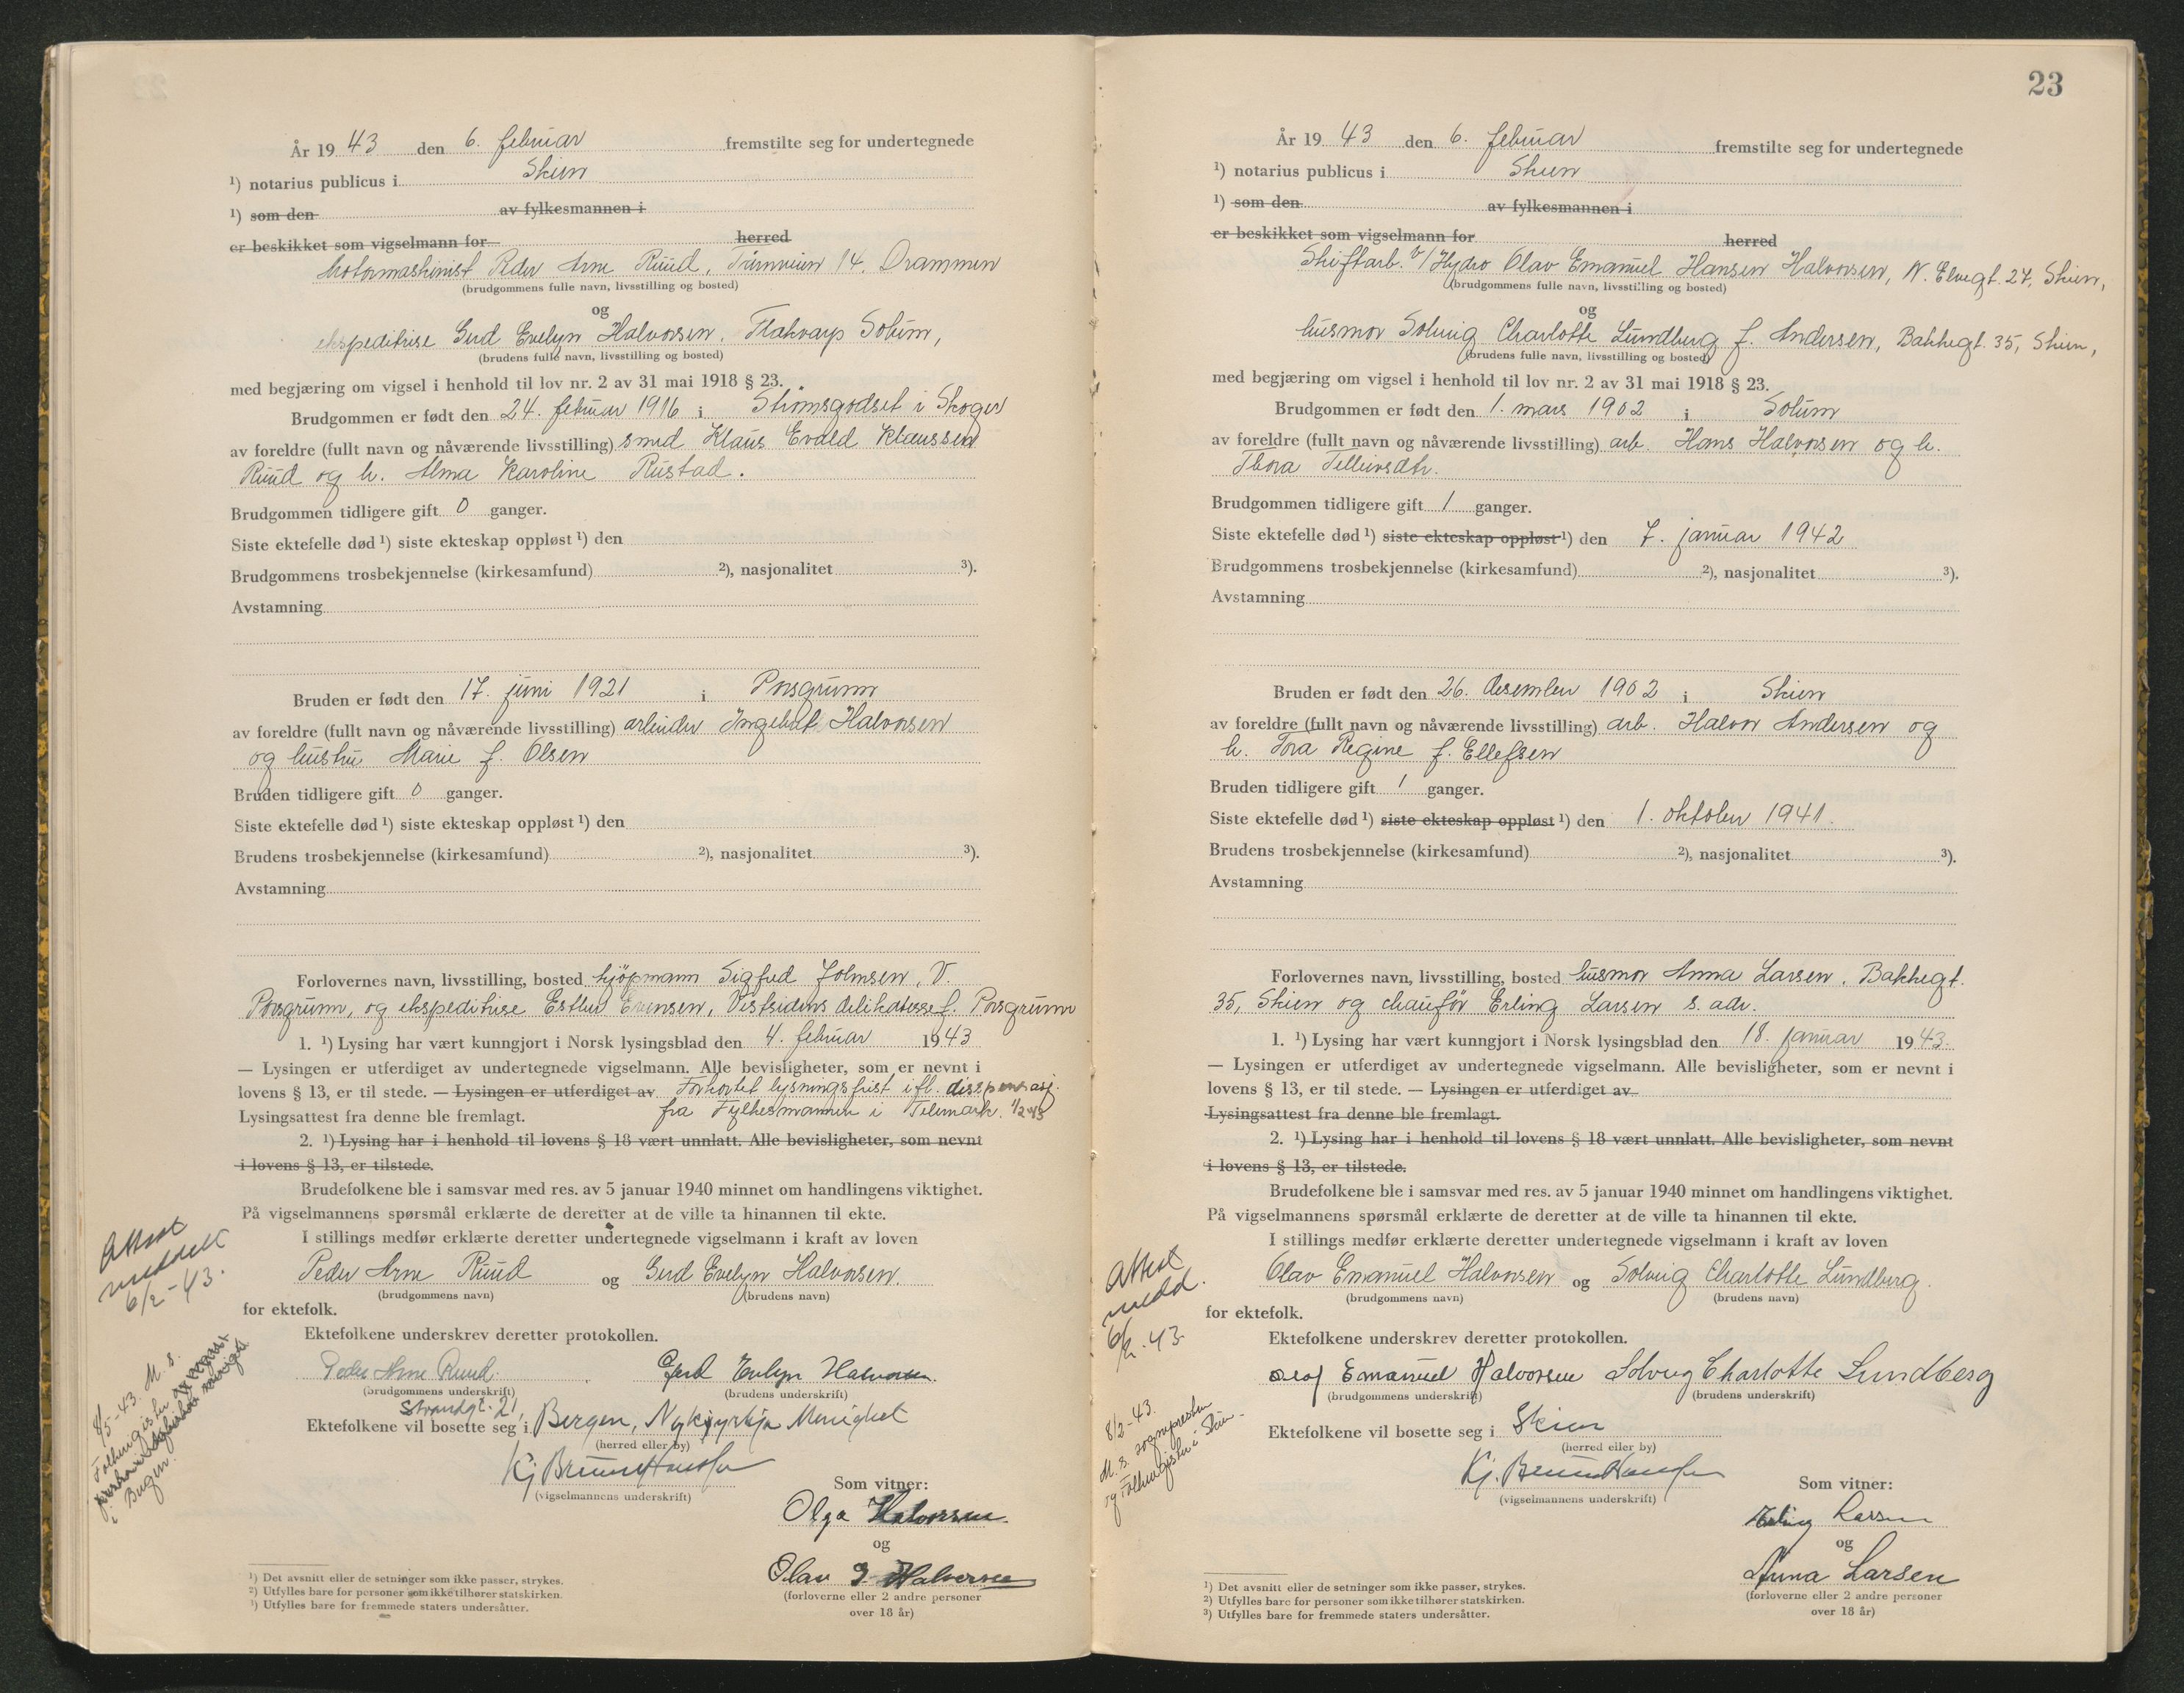 År 19 43 den 6. februar fremstilte seg for undertegnede
¹) notarius publicus i Skien
¹) som den av fylkesmannen i
er beskikket som vigselmann for herred
Motormaskinist Peder Arne Ruud, Türnveien 14. Drammen
(brudgommens fulle navn, livsstilling og bosted)
og
ekspeditrise Gerd Evelyn Halvorsen, Flakvarp Solum,
(brudens fulle navn, livsstilling og bosted)
med begjæring om vigsel i henhold til lov nr. 2 av 31 mai 1918 § 23.
Brudgommen er født den 24. februar 1916 i Strømsgodset i Skoger
av foreldre (fullt navn og nåværende livsstilling) smed Klaus Evald Klaussen
Ruud og h. Alma Karoline Rustad.
Brudgommen tidligere gift 0 ganger.
Siste ektefelle død ¹) siste ekteskap oppløst ¹) den
Brudgommens trosbekjennelse (kirkesamfund) ²), nasjonalitet ³).
Avstamning
Bruden er født den 17. juni 1921 i Porsgrunn
av foreldre (fullt navn og nåværende livsstilling) arbeider Ingebret Halvorsen
og hustru Marie f. Olsen
Bruden tidligere gift 0 ganger.
Siste ektefelle død ¹) siste ekteskap oppløst ¹) den
Brudens trosbekjennelse (kirkesamfund) ²), nasjonalitet ³).
Avstamning
Forlovernes navn, livsstilling, bosted kjöpmann Sigfred Johnsen, V.
Porsgrunn, og ekspeditrise Esther Evensen, Vestsidens delikatessef. Porsgrunn
1. ¹) Lysing har vært kunngjort i Norsk lysingsblad den 4. februar 1943
— Lysingen er utferdiget av undertegnede vigselmann. Alle bevisligheter, som er nevnt i
lovens § 13, er til stede. — Lysingen er utferdiget av Forkortet lysningsfrist ifl. disspensasj.
Lysingsattest fra denne ble fremlagt. fra Fylkesmannen i Telemark. 1/2 43
2. ¹) Lysing har i henhold til lovens § 18 vært unnlatt. Alle bevisligheter, som nevnt
i lovens § 13, er tilstede.
Brudefolkene ble i samsvar med res. av 5 januar 1940 minnet om handlingens viktighet.
På vigselmannens spørsmål erklærte de deretter at de ville ta hinannen til ekte.
I stillings medfør erklærte deretter undertegnede vigselmann i kraft av loven
Peder Arne Ruud og Gerd Evelyn Halvorsen.
(brudgommens navn) (brudens navn)
for ektefolk.
Ektefolkene underskrev deretter protokollen.
Peder Arne Ruud. Gerd Evelyn Halvorsen.
(brudgommens underskrift) (brudens underskrift)
Strandgt. 21,
Ektefolkene vil bosette seg i Bergen, Nykyrkja Menighet
(herred eller by)
Kj. Bruun Hanssen
(vigselmannens underskrift)
Som vitner:
Olga Halvorsen.
og
Olav I. Halvorsen
(forloverne eller 2 andre personer
over 18 år)
Attest
meddelt
6/2-43.
8/5-43. M. s.
Folkregister
i Bergen.
¹) Det avsnitt eller de setninger som ikke passer, strykes.
²) Utfylles bare for personer som ikke tilhører statskirken.
³) Utfylles bare for fremmede staters undersåtter.
23
År 19 43 den 6. februar fremstilte seg for undertegnede
¹) notarius publicus i Skien
¹) som den av fylkesmannen i
er beskikket som vigselmann for herred
Skiftarb. v/ Hydro Olav Emanuel Hansen Halvorsen, N. Elvegt. 27, Skien,
(brudgommens fulle navn, livsstilling og bosted)
og
husmor Solveig Charlotte Lundberg f. Andersen, Bakkegt. 35, Skien,
(brudens fulle navn, livsstilling og bosted)
med begjæring om vigsel i henhold til lov nr. 2 av 31 mai 1918 § 23.
Brudgommen er født den 1. mars 1902 i Solum
av foreldre (fullt navn og nåværende livsstilling) arb. Hans Halvorsen og h.
Thora Tellevsdtr.
Brudgommen tidligere gift 1 ganger.
Siste ektefelle død ¹) siste ekteskap oppløst ¹) den 7. januar 1942
Brudgommens trosbekjennelse (kirkesamfund) ²), nasjonalitet ³).
Avstamning
Bruden er født den 26. desember 1902 i Skien
av foreldre (fullt navn og nåværende livsstilling) arb. Halvor Andersen og
h. Tora Regine f. Ellefsen
Bruden tidligere gift 1 ganger.
Siste ektefelle død ¹) siste ekteskap oppløst ¹) den 1. oktober 1941.
Brudens trosbekjennelse (kirkesamfund) ²), nasjonalitet ³).
Avstamning
Forlovernes navn, livsstilling, bosted husmor Anna Larsen, Bakkegt.
35, Skien og chaufför Erling Larsen s. adr.
1. ¹) Lysing har vært kunngjort i Norsk lysingsblad den 18. januar 1943.
— Lysingen er utferdiget av undertegnede vigselmann. Alle bevisligheter, som er nevnt i
lovens § 13, er til stede. — Lysingen er utferdiget av
Lysingsattest fra denne ble fremlagt.
2. ¹) Lysing har i henhold til lovens § 18 vært unnlatt. Alle bevisligheter, som nevnt
i lovens § 13, er tilstede.
Brudefolkene ble i samsvar med res. av 5 januar 1940 minnet om handlingens viktighet.
På vigselmannens spørsmål erklærte de deretter at de ville ta hinannen til ekte.
I stillings medfør erklærte deretter undertegnede vigselmann i kraft av loven
Olav Emanuel Halvorsen og Solveig Charlotte Lundberg.
(brudgommens navn) (brudens navn)
for ektefolk.
Ektefolkene underskrev deretter protokollen.
Olaf Emanuel Halvorsen Solveig Charlotte Lundberg
(brudgommens underskrift) (brudens underskrift)
Ektefolkene vil bosette seg i Skien
(herred eller by)
Kj. Bruun Hanssen
(vigselmannens underskrift)
Som vitner:
Erling Larsen
og
Anna Larsen
(forloverne eller 2 andre personer
over 18 år)
Attest
medd.
6/2.43.
8/2-43.
M. s. sognepresten
og Folkregister i Skien.
¹) Det avsnitt eller de setninger som ikke passer, strykes.
²) Utfylles bare for personer som ikke tilhører statskirken.
³) Utfylles bare for fremmede staters undersåtter.